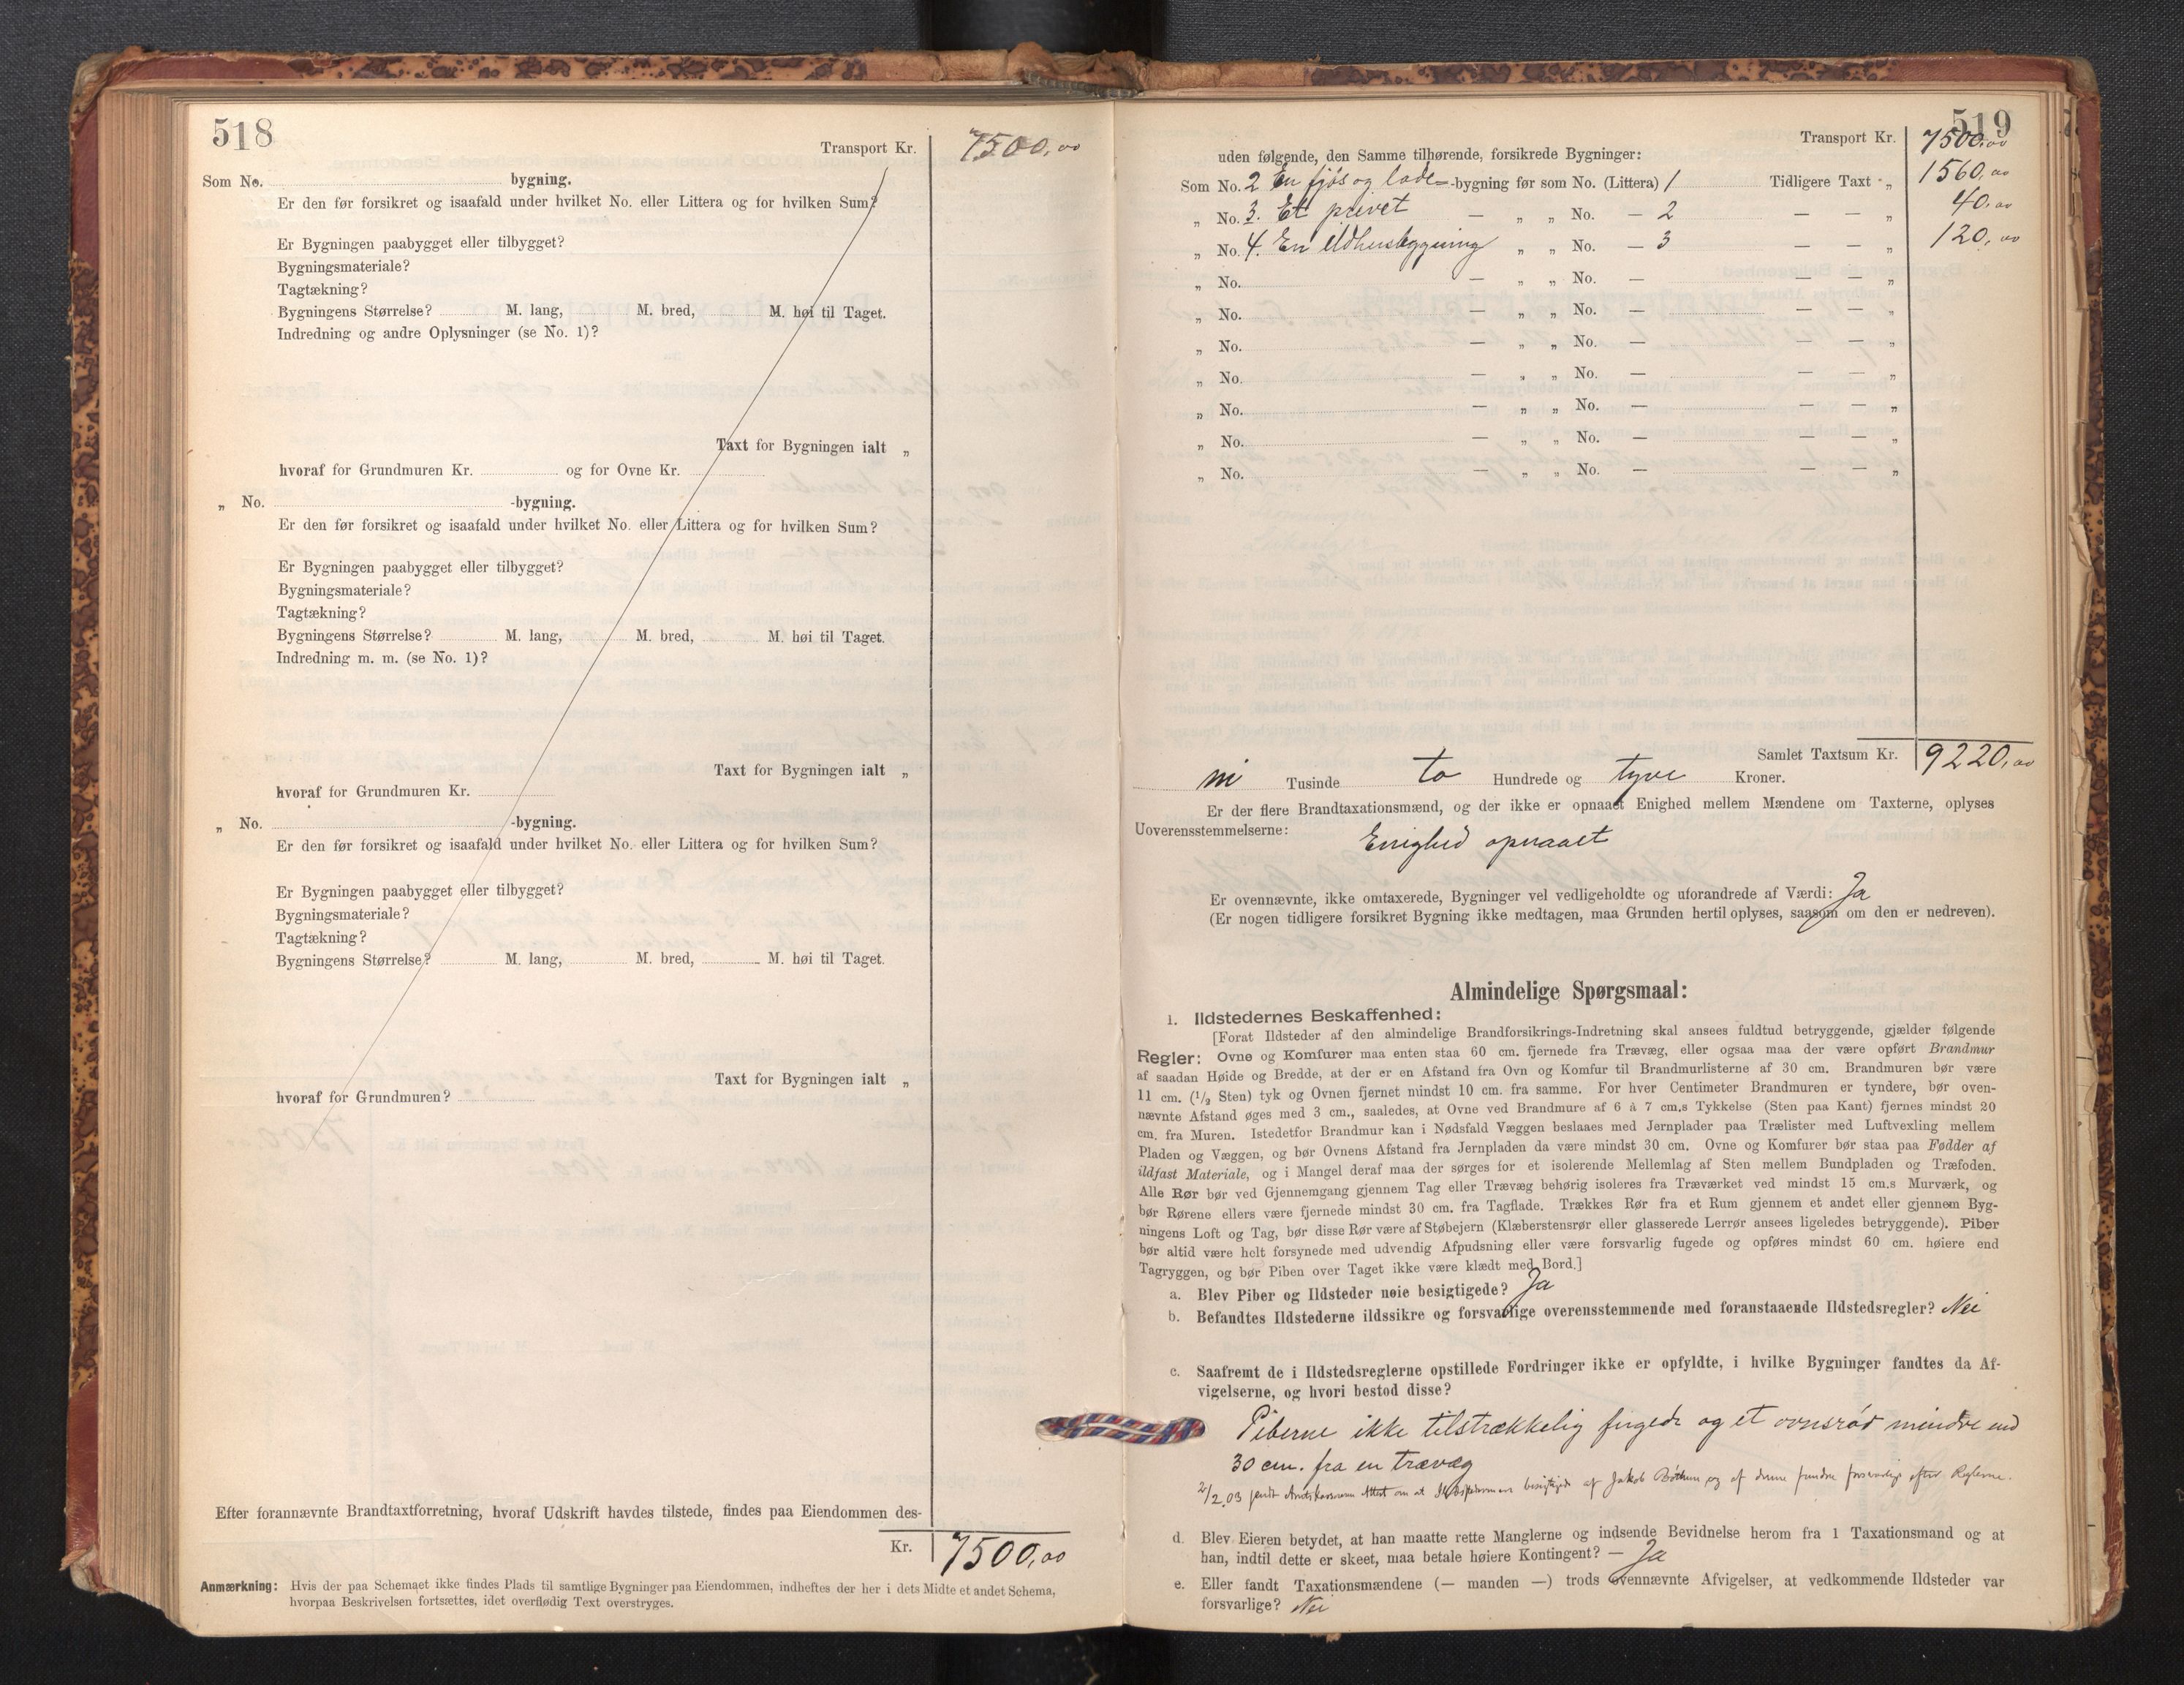 518
Transport Kr. 7500,00
Som No. bygning.
Er den før forsikret og isaafald under hvilket No. eller Littera og for hvilken Sum?
Er Bygningen paabygget eller tilbygget?
Bygningsmateriale?
Tagtækning?
Bygningens Størrelse? M. lang, M. bred, M. høi til Taget.
Indredning og andre Oplysninger (se No. 1)?
Taxt for Bygningen ialt „
hvoraf for Grundmuren Kr. og for Ovne Kr.
„ No. -bygning.
Er den før forsikret og isaafald under hvilket No. eller Littera og for hvilken Sum?
Er Bygningen paabygget eller tilbygget?
Bygningsmateriale?
Tagtækning?
Bygningens Størrelse? M. lang, M. bred, M. høi til Taget.
Indredning m. m. (se No. 1)?
Taxt for Bygningen ialt „
hvoraf for Grundmuren Kr.
„ No. -bygning.
Er den før forsikret og isaafald under hvilket No. eller Littera og for hvilken Sum?
Er Bygningen paabygget eller tilbygget?
Bygningsmateriale?
Tagtækning?
Bygningens Størrelse? M. lang, M. bred, M. høi til Taget.
Taxt for Bygningen ialt „
hvoraf for Grundmuren?
Efter forannævnte Brandtaxtforretning, hvoraf Udskrift havdes tilstede, findes paa Eiendommen des-
Kr. 7500,00
Anmærkning: Hvis der paa Schemaet ikke findes Plads til samtlige Bygninger paa Eiendommen, indheftes der her i dets Midte et andet Schema,
hvorpaa Beskrivelsen fortsættes, idet overflødig Text overstryges.
519
Transport Kr. 7500,00
uden følgende, den Samme tilhørende, forsikrede Bygninger:
Som No. 2 En fjøs og lade -bygning før som No. (Littera) 1 Tidligere Taxt - „ 1560,00
„ No. 3. Et privet — „ „ No. — 2 — — „ 40,00
„ No. 4. En ildhusbygning „ „ No. — 3 — — „ 120,00
„ No. — „ „ No. — — — „
„ No. — „ „ No. — — — „
„ No. — „ „ No. — — — „
„ No. — „ „ No. — — — „
„ No. — „ „ No. — — — „
„ No. — „ „ No. — — — „
„ No. — „ „ No. — — — „
Samlet Taxtsum Kr. 9220,00
ni Tusinde to Hundrede og tyve Kroner.
Er der flere Brandtaxationsmænd, og der ikke er opnaaet Enighed mellem Mændene om Taxterne, oplyses
Uoverensstemmelserne: Enighed opnaaet
Er ovennævnte, ikke omtaxerede, Bygninger vel vedligeholdte og uforandrede af Værdi: Ja
(Er nogen tidligere forsikret Bygning ikke medtagen, maa Grunden hertil oplyses, saasom om den er nedreven).
Almindelige Spørgsmaal:
1. Ildstedernes Beskaffenhed:
[Forat Ildsteder af den almindelige Brandforsikrings-Indretning skal ansees fuldtud betryggende, gjælder følgende
Regler: Ovne og Komfurer maa enten staa 60 cm. fjernede fra Trævæg, eller ogsaa maa der være opført Brandmur
af saadan Høide og Bredde, at der er en Afstand fra Ovn og Komfur til Brandmurlisterne af 30 cm. Brandmuren bør være
11 cm. (1/2 Sten) tyk og Ovnen fjernet mindst 10 cm. fra samme. For hver Centimeter Brandmuren er tyndere, bør oven-
nævnte Afstand øges med 3 cm., saaledes, at Ovne ved Brandmure af 6 à 7 cm.s Tykkelse (Sten paa Kant) fjernes mindst 20
cm. fra Muren. Istedetfor Brandmur kan i Nødsfald Væggen beslaaes med Jernplader paa Trælister med Luftvexling mellem
Pladen og Væggen, og bør Ovnens Afstand fra Jernpladen da være mindst 30 cm. Ovne og Komfurer bør staa paa Fødder af
ildfast Materiale, og i Mangel deraf maa der sørges for et isolerende Mellemlag af Sten mellem Bundpladen og Træfoden.
Alle Rør bør ved Gjennemgang gjennem Tag eller Trævæg behørig isoleres fra Træværket ved mindst 15 cm.s Murværk, og
bør Rørene ellers være fjernede mindst 30 cm. fra Tagflade. Trækkes Rør fra et Rum gjennem et andet eller gjennem Byg-
ningens Loft og Tag, bør disse Rør være af Støbejern (Klæberstensrør eller glasserede Lerrør ansees ligeledes betryggende). Piber
bør altid være helt forsynede med udvendig Afpudsning eller være forsvarlig fugede og opføres mindst 60 cm. høiere end
Tagryggen, og bør Piben over Taget ikke være klædt med Bord.]
a. Blev Piber og Ildsteder nøie besigtigede? Ja
b. Befandtes Ildstederne ildssikre og forsvarlige overensstemmende med foranstaaende Ildstedsregler? Nei
c. Saafremt de i Ildstedsreglerne opstillede Fordringer ikke er opfyldte, i hvilke Bygninger fandtes da Af-
vigelserne, og hvori bestod disse?
Piberne ikke tilstrækkelig fugede og et ovnsrør mindre end
30 cm. fra en trævæg
2/2.03 sendt Attest om at besigtigede af Jakob og af denne fundne forsvarlige efter Reglerne.
d. Blev Eieren betydet, at han maatte rette Manglerne og indsende Bevidnelse herom fra 1 Taxationsmand og at
han, indtil dette er skeet, maa betale høiere Kontingent? — Ja
e. Eller fandt Taxationsmændene (— manden —) trods ovennævnte Afvigelser, at vedkommende Ildsteder var
forsvarlige? Nei